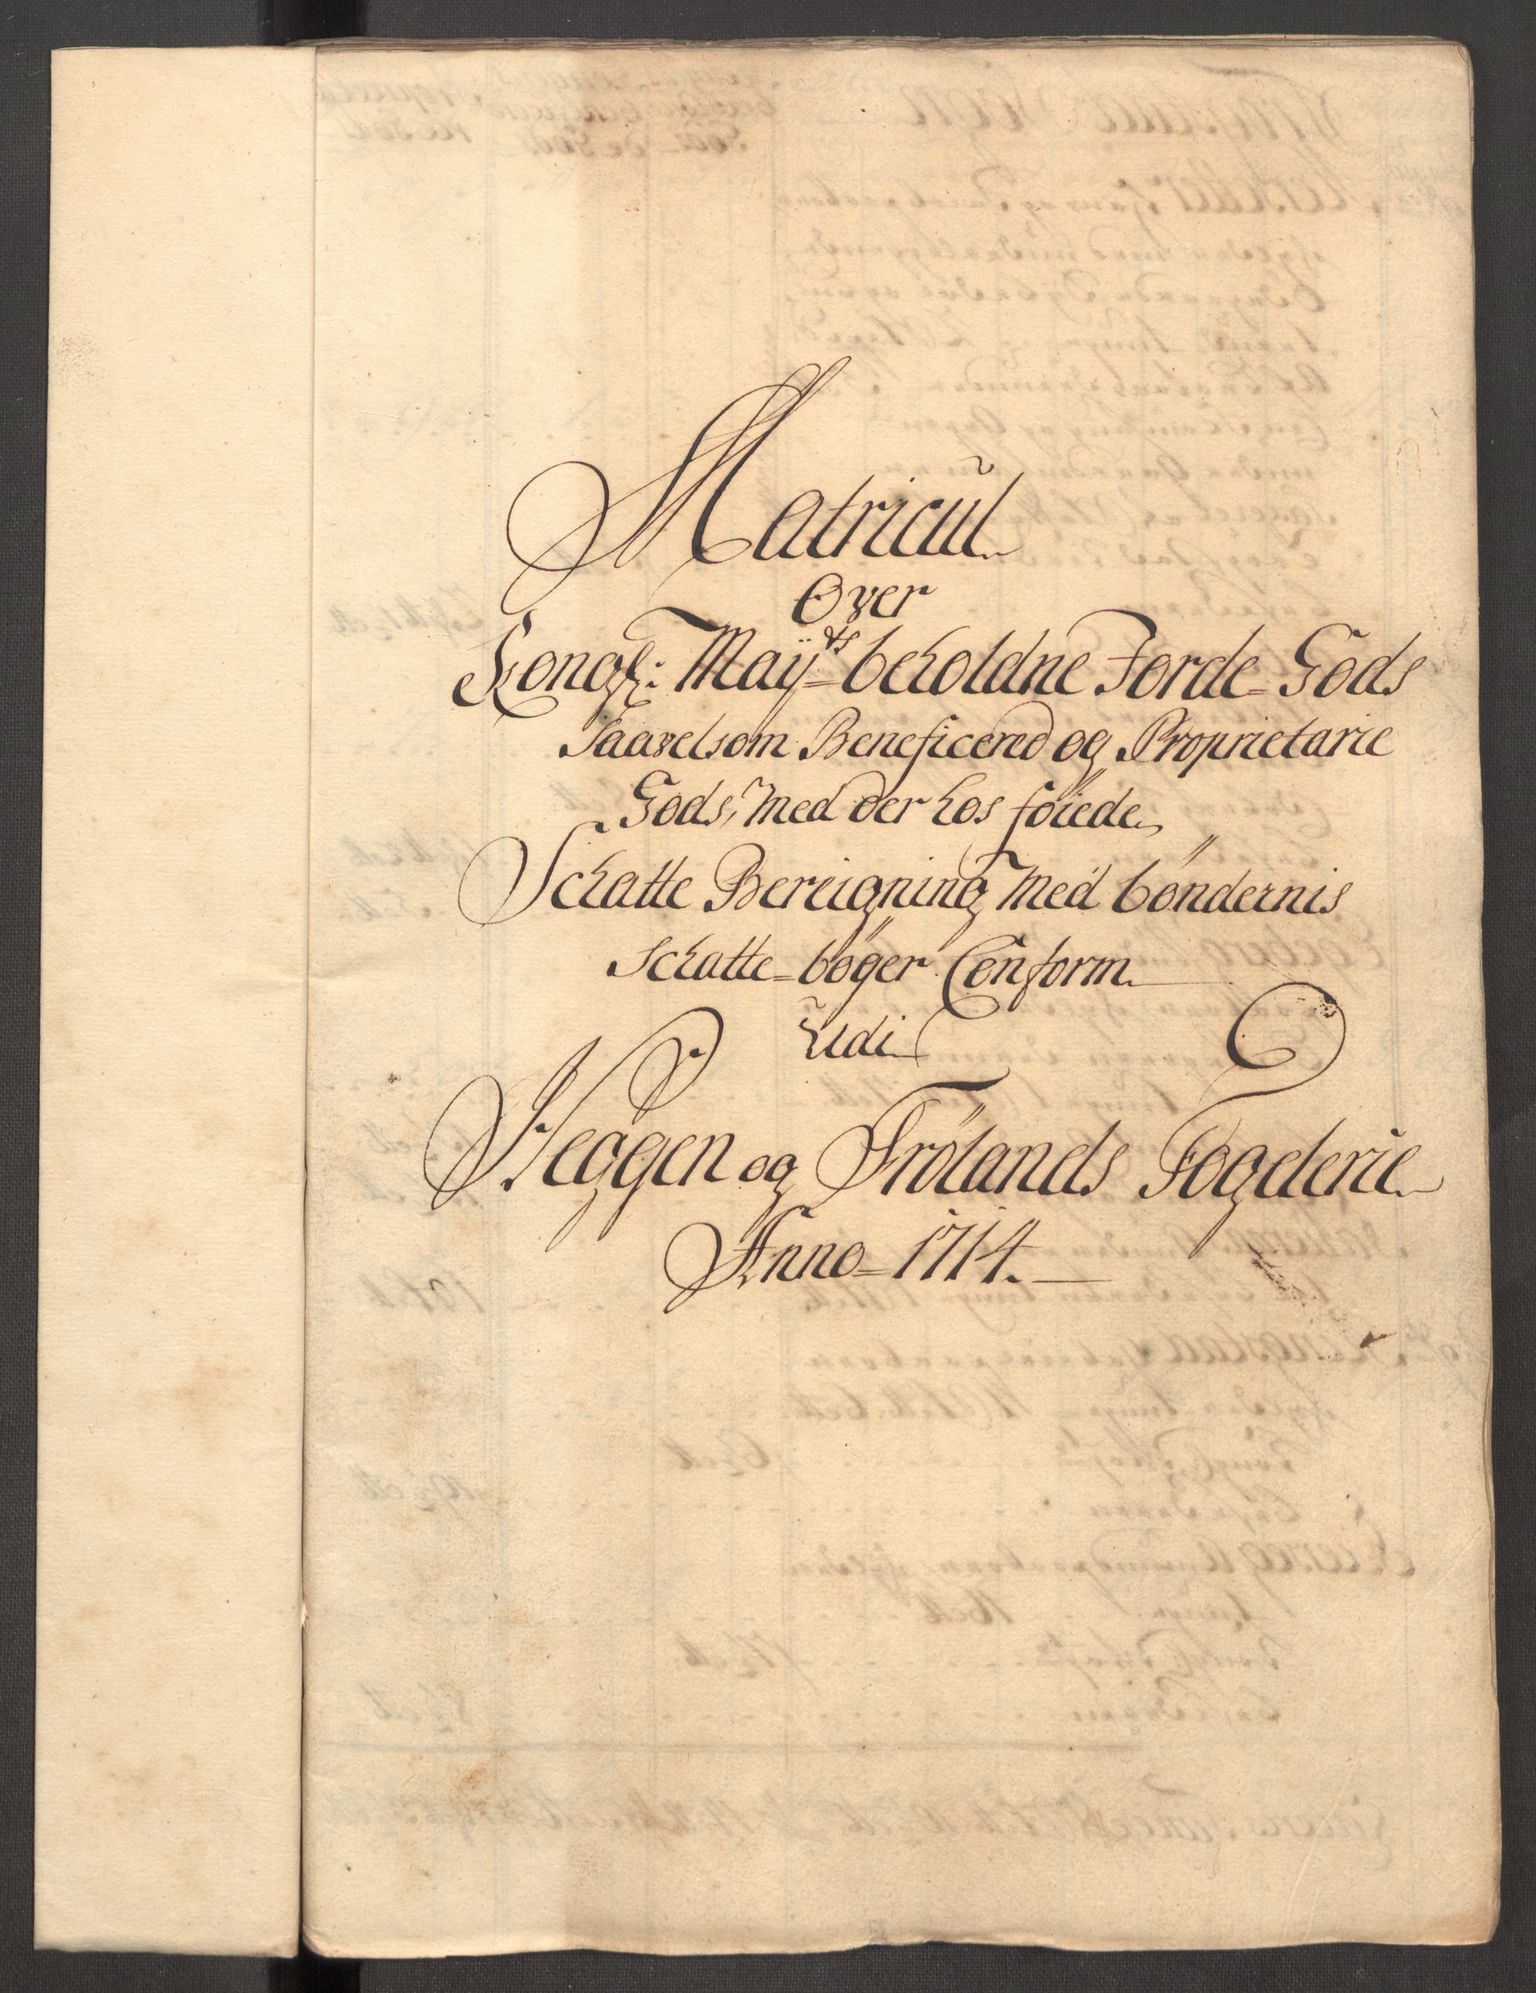 Matricul
Over
Kongl: Maÿts beholdne Jorde-Gods
Saavelsom Beneficered og Proprietarie
Gods, Med der hos föiede
Schatte Bereigning Med böndernis
Schatte-böger Conform
Udi
Heggen og Frölands Fogderie
Anno-1714.